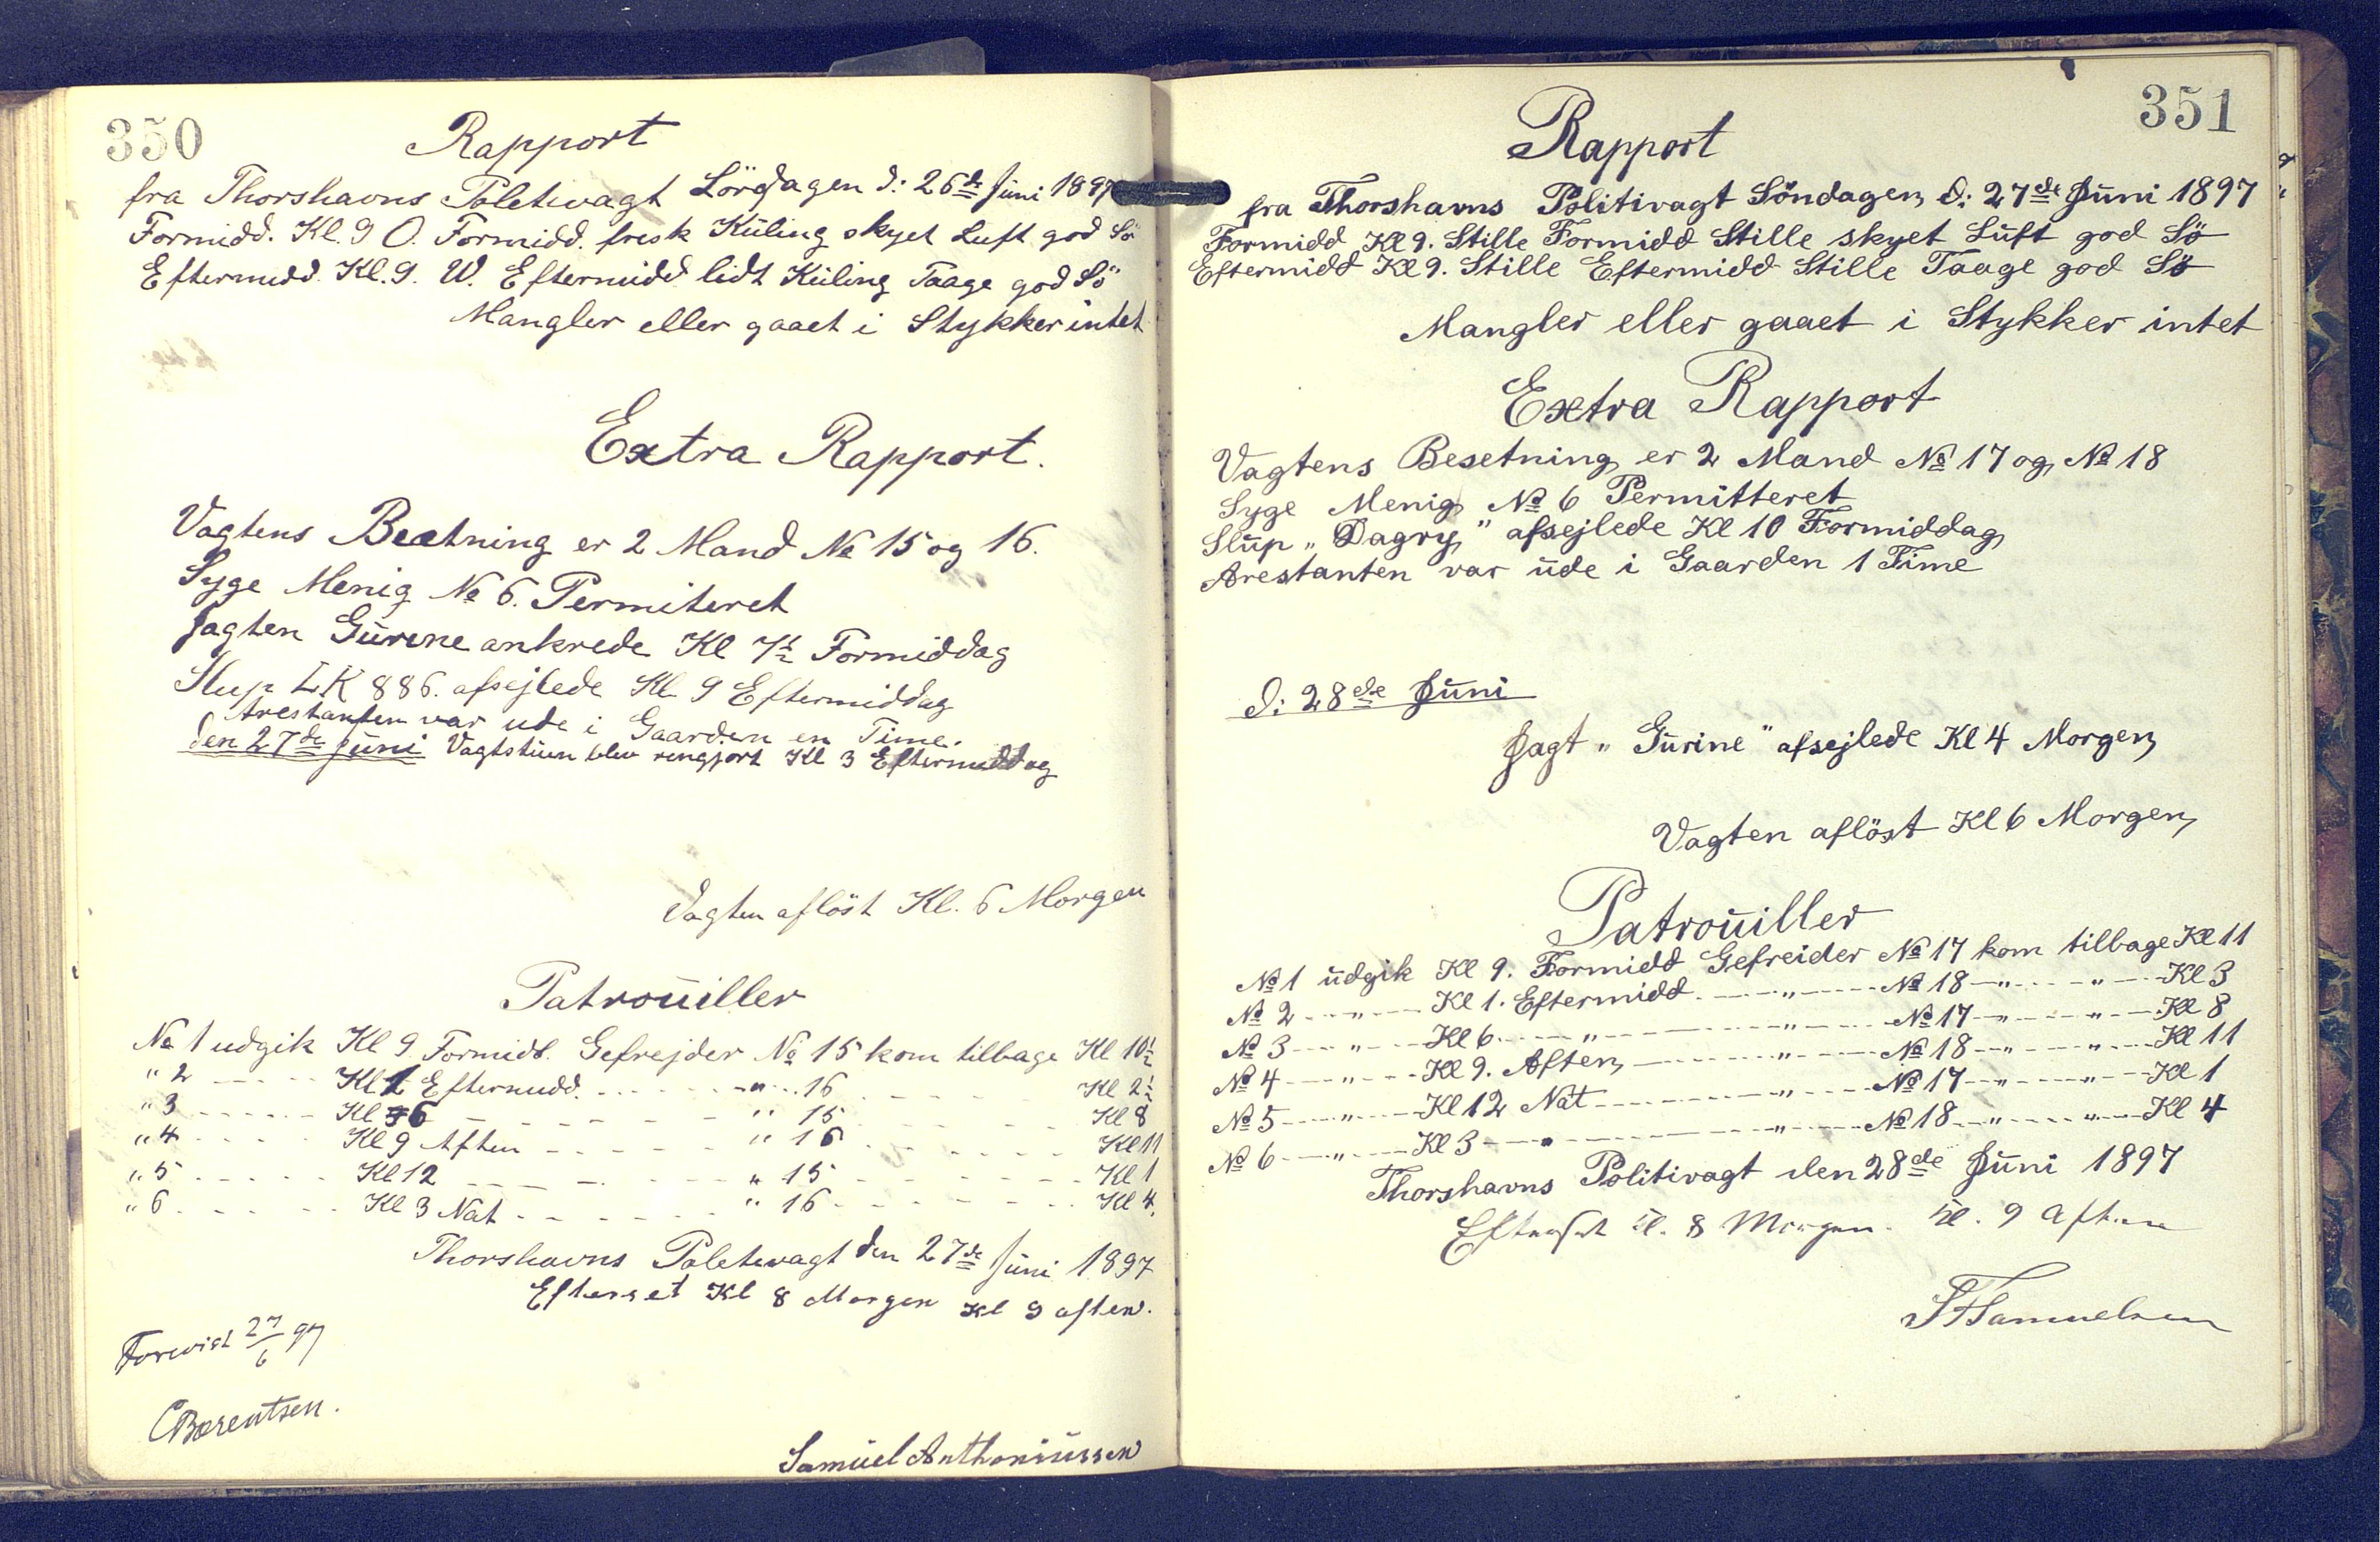 350
Rapport
fra Thorshavns Poletivagt Lördagen d: 26de Juni 1897
Formidd. Kl. 9 O. Formidd. fresk Küling skyet Luft god Sö
Eftermidd. Kl. 9. W. Eftermidd lidt Küling Taage god Sö
Mangler eller gaaet i Stykker intet
Extra Rapport.
Vagtens Besetning er 2 Mand No 15 og 16.
Syge Menig No 6. Permiteret
Jagten Gurine ankrede Kl 7½ Formiddag
Slup LK 886. afsejlede Kl 9 Eftermiddag
Arestanten var ude i Gaarden en Time.
den 27de Juni Vagtstuen blev rengjort Kl 3 Eftermiddag
Vagten aflöst Kl. 6 Morgen
Patrouiller
No 1 udgik Kl 9 Formidd. Gefrejder No 15 kom tilbage Kl 10½
" 2 - - - Kl 1 Eftermidd. - - - " - 16 - - - Kl 2½
" 3 - - - Kl 6 - - - " 15 - - - Kl 8
" 4 - - - Kl 9 Aften - - - " 16 - - - Kl 11
" 5 - - - Kl 12 - - - " 15 - - - Kl 1
" 6 - - - Kl 3 Nat - - - " 16 - - - Kl 4.
Thorshavns Poletivagt den 27de Juni 1897
Efterset Kl 8 Morgen Kl 9 aften.
Forevist 27/6 97
CBærentsen.
Samuel Anthoniussen
351
Rapport
fra Thorshavns Politivagt Söndagen d: 27de Juni 1897
Formidd Kl 9. Stille Formidd Stille skyet Luft god Sö
Eftermidd Kl 9. Stille Eftermidd Stille Taage god Sö
Mangler eller gaaet i Stykker intet
Extra Rapport
Vagtens Besetning er 2 Mand No 17 og No 18
Syge Menig No 6 Permitteret
Slup "Dagry" afsejlede Kl 10 Formiddag
Arestanten var ude i Gaarden 1 Time
d: 28de Juni
Jagt "Gurine" afsejlede Kl 4 Morgen
Vagten aflöst Kl 6 Morgen
Patrouiller
No 1 udgik Kl 9. Formidd Gefreider No 17 kom tilbage Kl 11
No 2 - " - Kl 1. Eftermidd. - " - No 18 - " - " - Kl 3
No 3 - " - Kl 6. - " - " - No 17 - " - " - Kl 8
No 4 - " - Kl 9. Aften - " - No 18 - " - " - Kl 11
No 5 - " - Kl 12 Nat - " - No 17 - " - " - Kl 1
No 6 - " - Kl 3 - " - " - No 18 - " - " - Kl 4
Thorshavns Politivagt den 28de Juni 1897
Efterset Kl. 8 Morgen. Kl. 9 Aften
Samuelsen